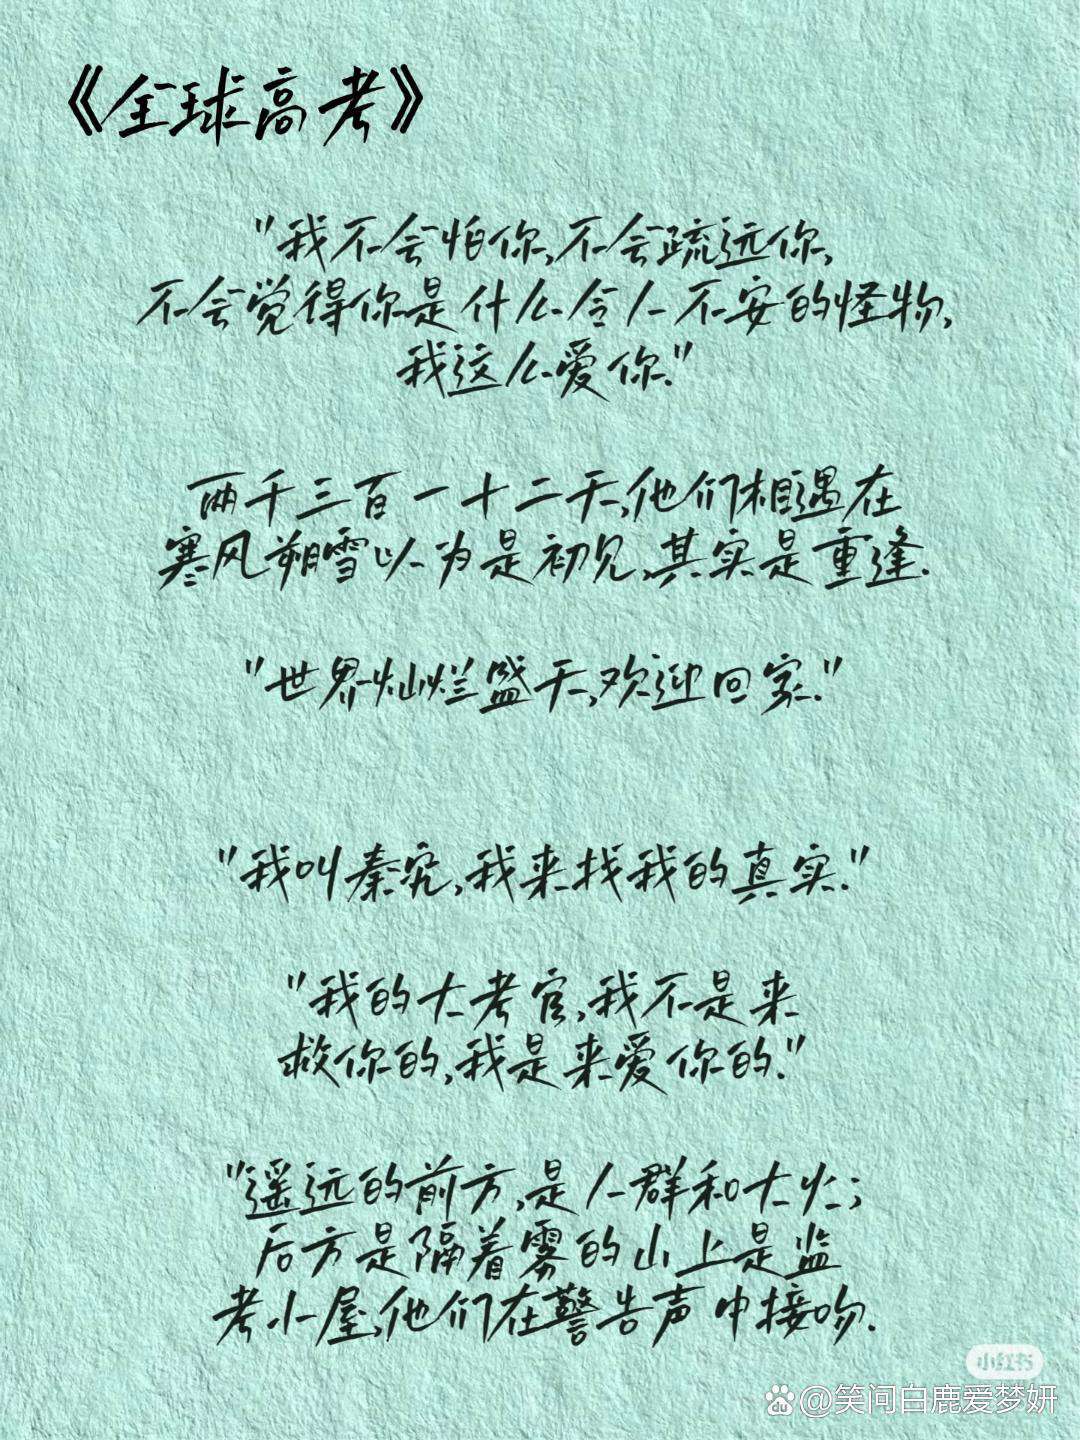 《全球高考》
"我不会怕你,不会疏远你,
不会觉得你是什么令人不安的怪物,
我这么爱你."
两千三百一十二天,他们相遇在
寒风朔雪以为是初见,其实是重逢.
"世界灿烂盛大,欢迎回家."
"我叫秦究,我来找我的真实."
"我的大考官,我不是来
救你的,我是来爱你的."
"遥远的前方,是人群和大火;
后方是隔着雾的山上是监
考小屋,他们在警告声中接吻.
小红书
Bai du @笑问白鹿爱梦妍